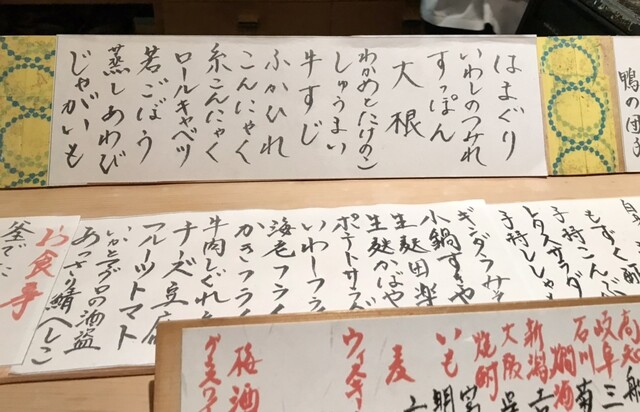 はまぐり
いわしのつみれ
すっぽん
大根
わかめとたけのこ
しゅうまい
牛すじ
ふかひれ
こんにゃく
糸こんにゃく
ロールキャベツ
若ごぼう
蒸しあわび
じゃがいも
鴨の団
もずく
子持こんぶ
レタスサラダ
子持ししゃも
ギンダラみそ
小鍋すき
生麩田楽
生麩かばや
ポテトサラダ
いわしフライ
海老フライ
かきフライ
牛肉しぐれ
チーズ豆腐
フルーツトマト
いかとマグロの酒盗
あっさり鯖へしこ
お食事
釜でた
岐阜 三
石川 南
燗酒
新潟
大阪 呉
焼酎
いも
麦
ウイスキ
梅酒
グラスワイ